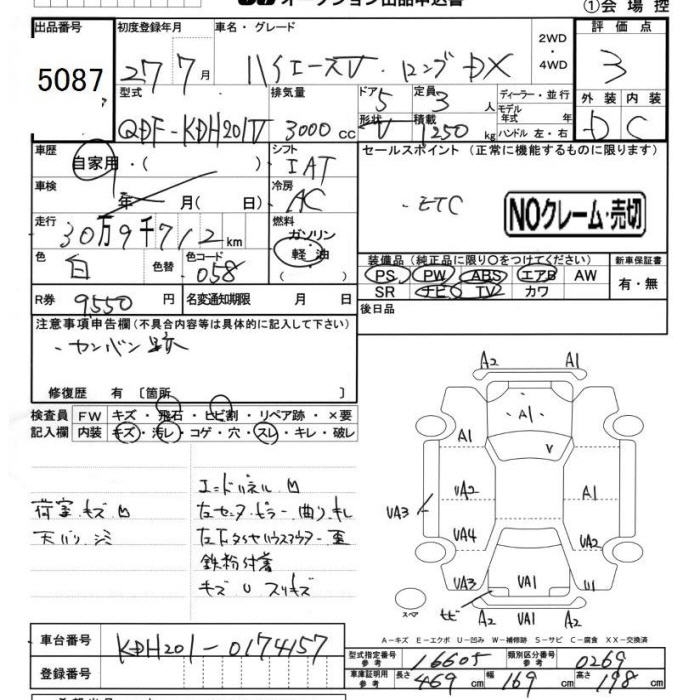 オークション出品申込書 ①会場控
出品番号 初度登録年月 車名・グレード 2WD・4WD 評価点
5087 27 7月 ハイエースV ロングDX 3
型式 排気量 ドア 定員 ディーラー・並行 外装 内装
QDF-KDH201V 3000cc 5 3人 モデル年式 年 D C
形状 積載 ハンドル 左・右
V 1250kg
車歴 シフト セールスポイント(正常に機能するものに限ります)
自家用・( ) IAT
車検 冷房
年 月( 日) AC ・ETC NOクレーム・売切
走行 燃料
30万9千712km ガソリン
色 色替 色コード 軽油 装備品(純正品に限り○をつけてください) 新車保証書
白 058 ( ) PS PW ABS エアB AW 有・無
SR ナビ TV カワ
R券 9,550円 名変通知期限 月 日 後日品
注意事項申告欄(不具合内容等は具体的に記入して下さい)
・カンバン跡
修復歴 有〔箇所 〕
検査員 FW キズ・飛石・ヒビ割・リペア跡・×要
記入欄 内装 キズ・汚レ・コゲ・穴・スレ・キレ・破レ
エンドパネル凹
荷室キズ凹 左センターピラー曲り キレ
天バリシミ
鉄粉付着
キズ U スリキズ
A2 A1
A1
A1 V
UA2 A1
UA3
UA4 UA2
UA3 UA1 U1
スペア ヒビ A2 UA1 A2
A-キズ E-エクボ U-凹み W-補修跡 S-サビ C-腐食 XX-交換済
車台番号 KDH201-0174157
型式指定番号 参考 16605 類別区分番号 参考 0269
登録番号 車庫証明用 参考 長さ 469cm 幅 169cm 高さ 198cm